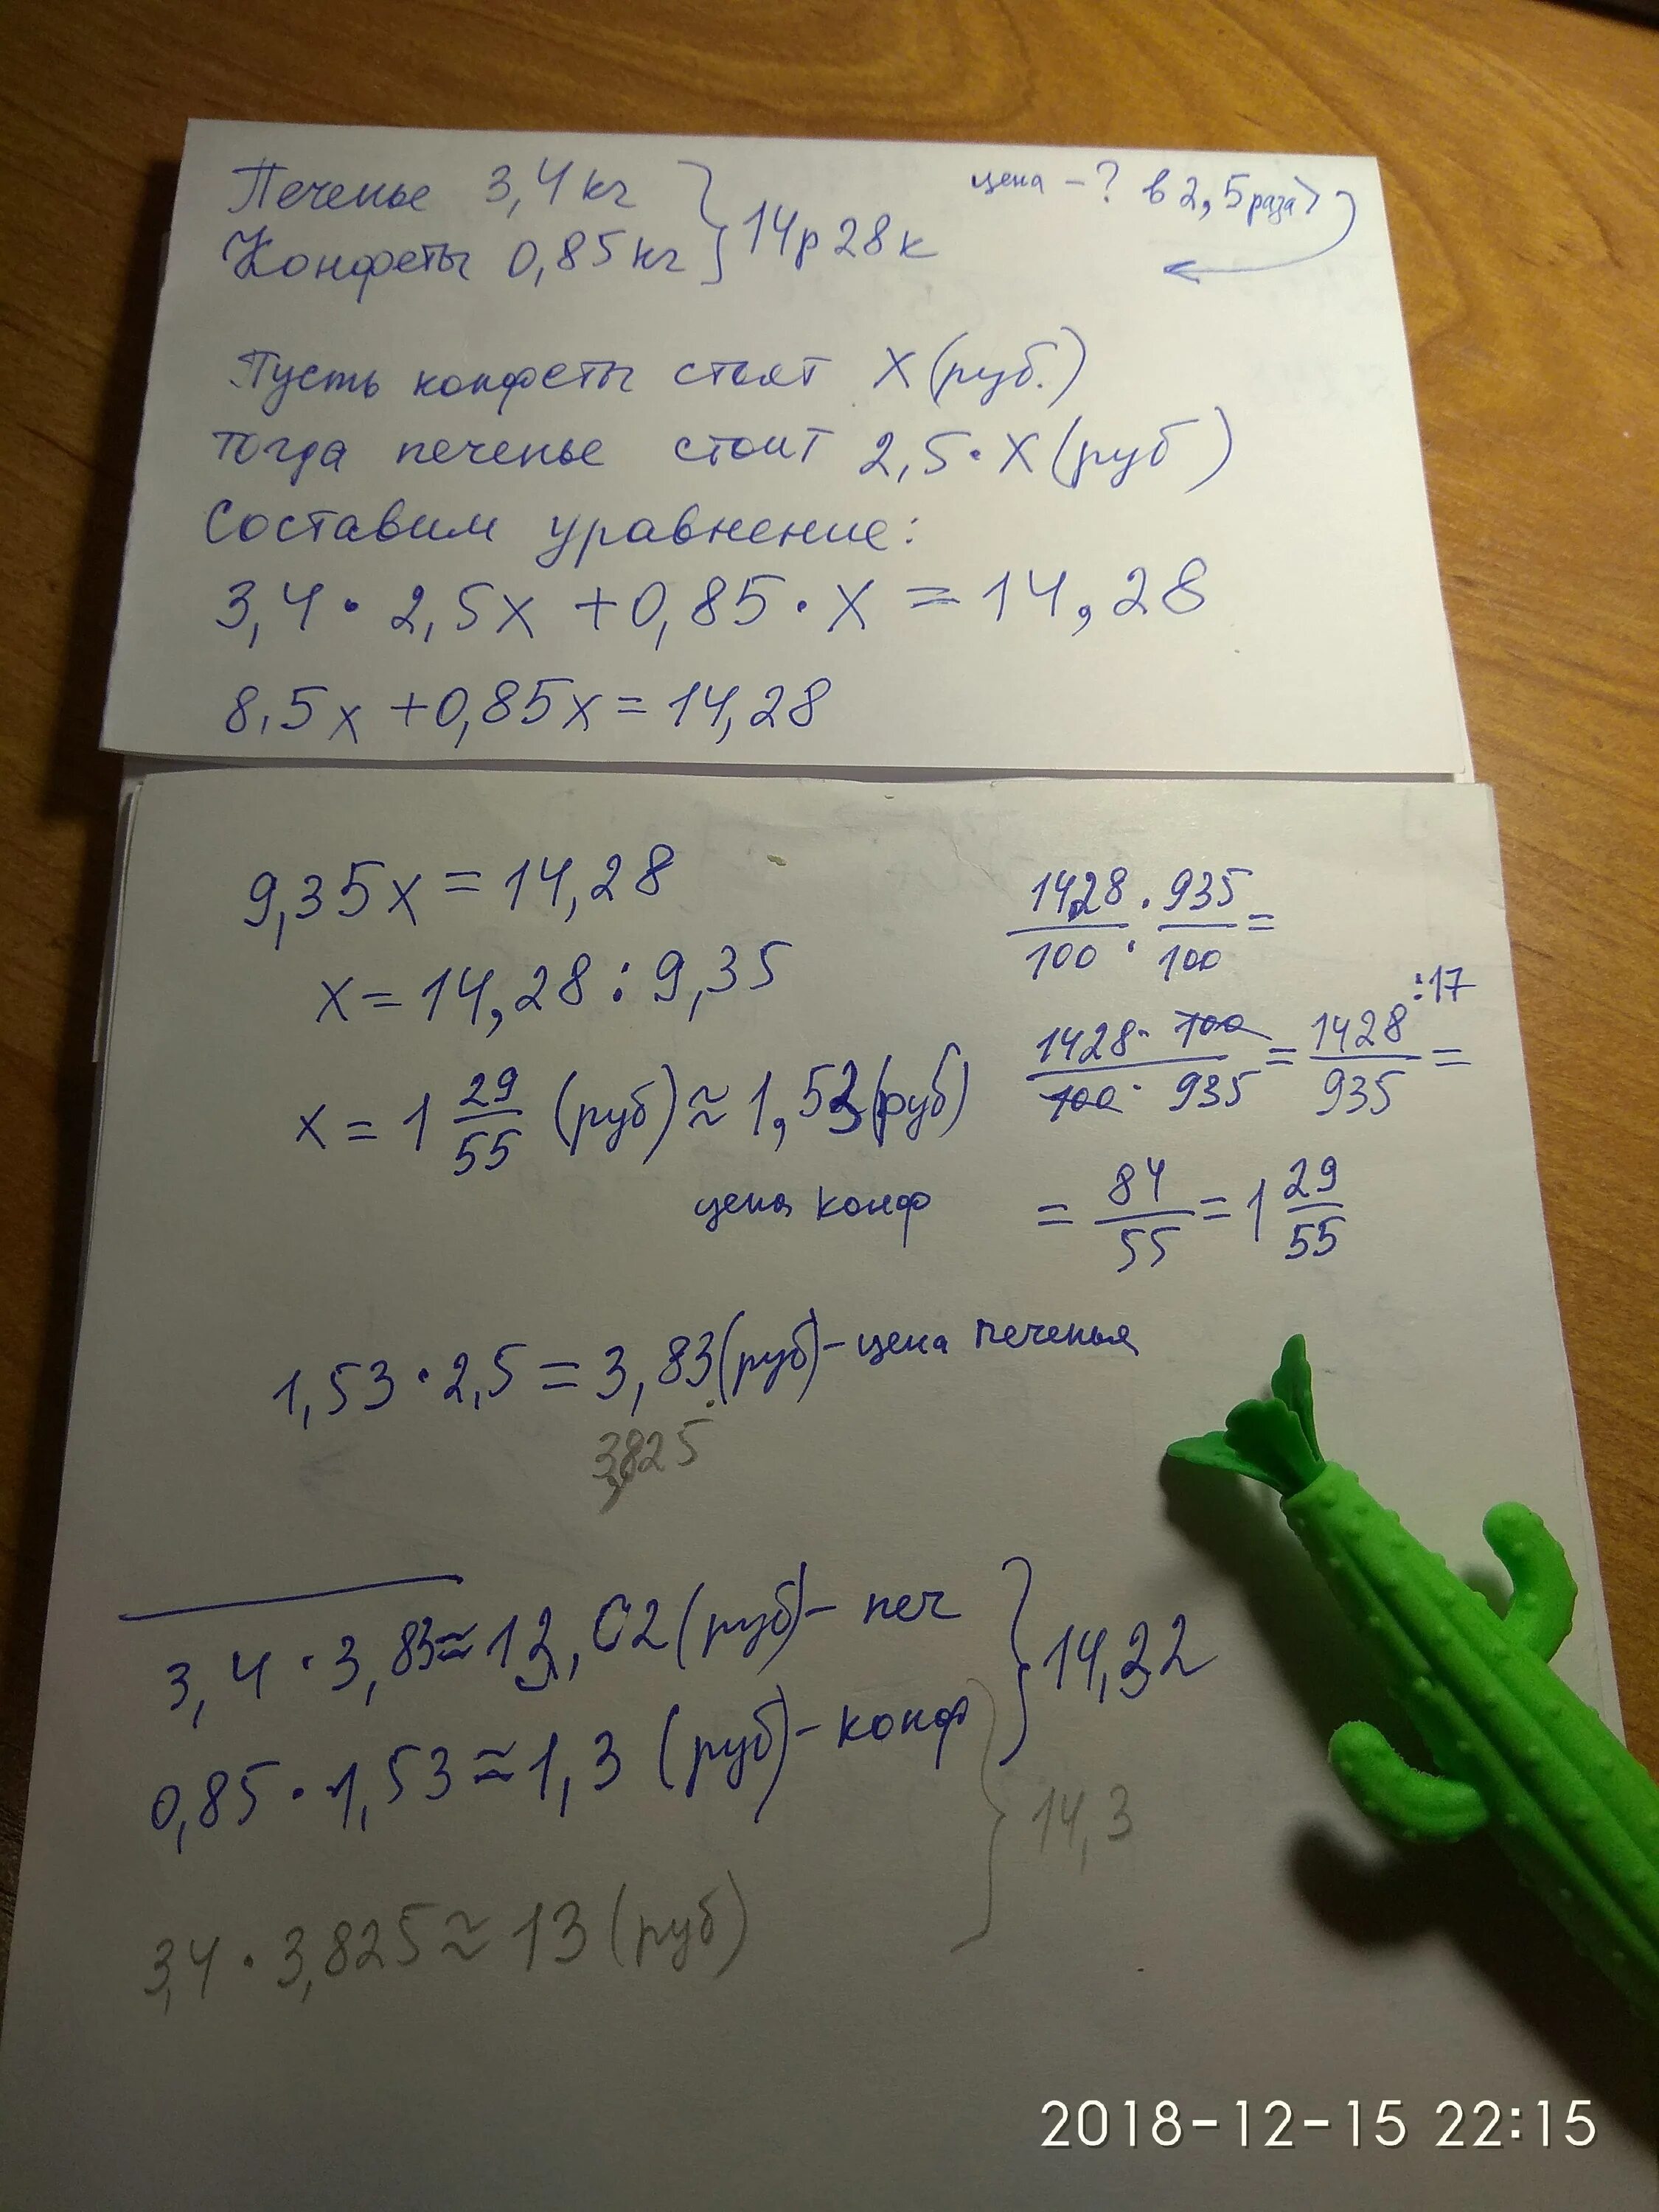 Печенье 3,4 кг
Конфеты 0,85 кг
14р 28к
цена - ? в 2,5 раза >
Пусть конфеты стоят x (руб.)
тогда печенье стоит 2,5·x (руб)
Составим уравнение:
3,4 · 2,5x + 0,85 · x = 14,28
8,5x + 0,85x = 14,28
9,35x = 14,28
x = 14,28 : 9,35
x = 1 29/55 (руб) ≈ 1,53 (руб)
цена конф
1428/100 : 935/100 =
1428· 100/100· 935 = 1428/935 :17 =
= 84/55 = 1 29/55
1,53 · 2,5 = 3,83 (руб) - цена печенья
3,825
3,4 · 3,83 ≈ 13,02 (руб) - печ
0,85 · 1,53 ≈ 1,3 (руб) - конф
14,32
14,3
3,4 · 3,825 ≈ 13 (руб)
2018-12-15 22:15